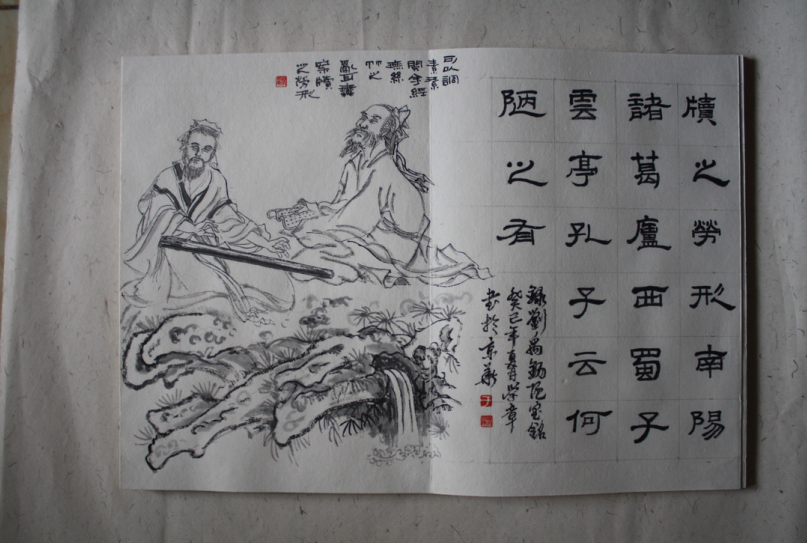 牘之勞形南陽
諸葛廬西蜀子
雲亭孔子云何
陋之有
錄劉禹錫陋室銘
癸巳年夏月章
書於京華
可以調
素琴
閱金經
無絲
竹之
亂耳無
案牘
之勞形